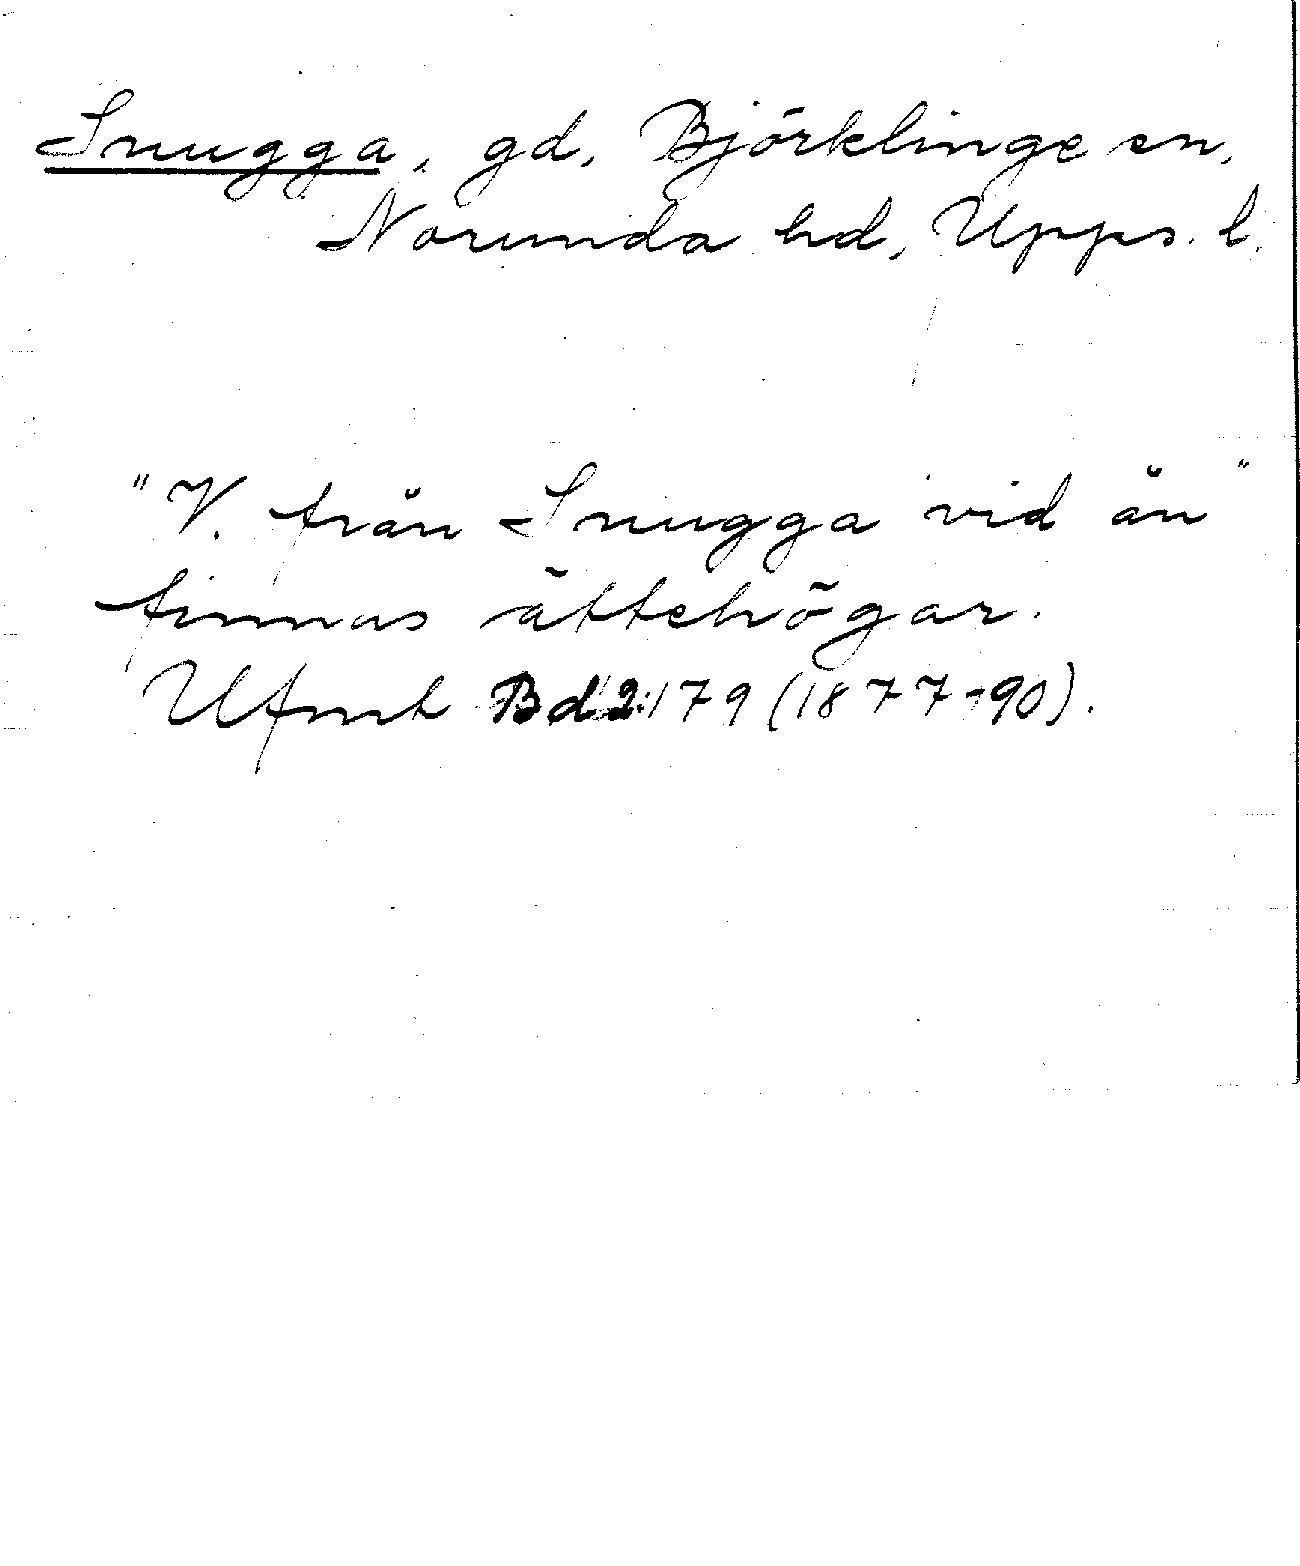 Snugga, gd, Björklinge sn,
Norunda hd, Upps. l.
"V. från Snugga vid ån"
finnas ättehögar.
Ufmt Bd 2:179 (1877-90).